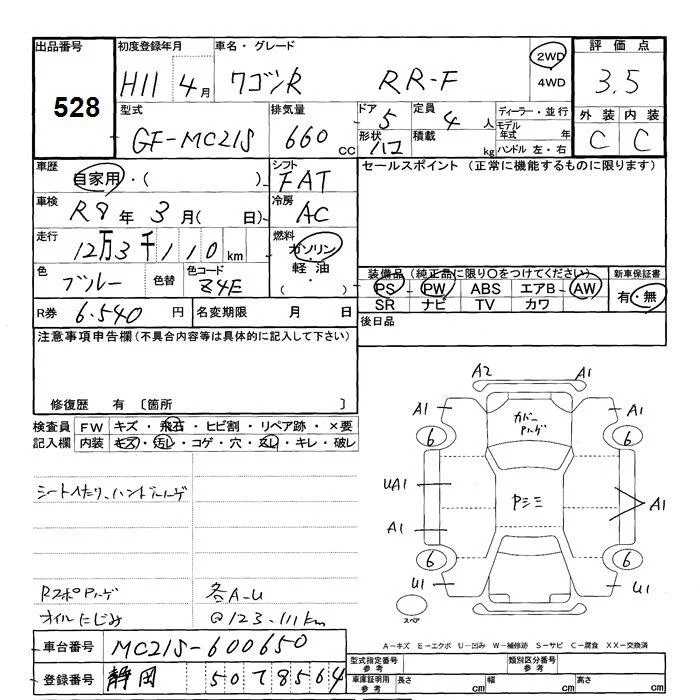 出品番号 初度登録年月 車名・グレード 評価点
528 H11 4月 ワゴンR RR-F 2WD 4WD 3.5
型式 排気量 ドア 定員 ディーラー・並行 外装 内装
GF-MC21S 660cc 5 4人 モデル年式 年 C C
形状 ハコ 積載 kg ハンドル 左・右
車歴 自家用・( ) シフト FAT セールスポイント (正常に機能するものに限ります)
車検 R8年3月( 日) 冷房 AC
走行 12万3千110km 燃料 ガソリン 軽油・( )
色 ブルー 色替 色コード Z4E
装備品 (純正品に限り○をつけてください) 新車保証書
PS PW ABS エアB AW 有・無
SR ナビ TV カワ
R券 6.540円 名変期限 月 日 後日品
注意事項申告欄 (不具合内容等は具体的に記入して下さい)
修復歴 有 〔箇所 〕
検査員記入欄 FW キズ・飛石・ヒビ割・リペア跡・×要
内装 キズ・汚レ・コゲ・穴・スレ・キレ・破レ
シートヘタリ、ハンドルハゲ
Rスポ Pハゲ 各A-U
オイルにじみ @123.111km
A2 A1
A1 カバー Pハゲ A1
6 6
UA1 Pシミ A1
A1
6 6
U1 U1
スペア
A-キズ E-エクボ U-凹み W-補修跡 S-サビ C-腐食 XX-交換済
車台番号 MC21S-600650
登録番号 静岡 50 78564
型式指定番号 参考 類別区分番号 参考
車庫証明用 参考 長さ cm 幅 cm 高さ cm